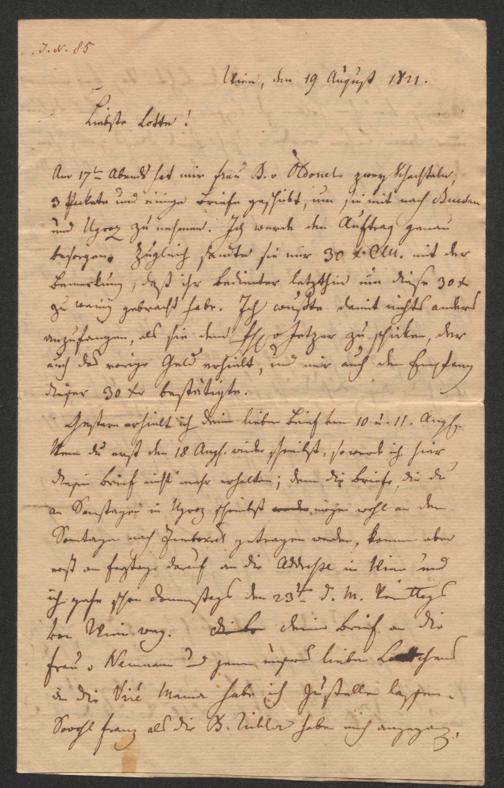 I. N. 85
Wien, den 19 August 1821.
Liebste Lotte!
Am 17ten Abends hat mir Frau B. v Odonel zwey Schachteln,
3 Pakete und einige Briefe geschickt, um sie mit nach
und Ugroz zu nehmen. Ich werde den Auftrag genau
besorgen. Zugleich sandte sie mir 30 x CM. mit der
Bemerkung, daß ihr Bedienter letzthin um diese 30 x
zu wenig gebracht habe. Ich wußte damit nichts anders
anzufangen, als sie dem H. v Jetzer zu schicken, der
auch das vorige Geld erhielt, und mir auch den Empfang
dieser 30 x bestätigte.
Gestern erhielt ich dein lieben Brief vom 10 u. 11. Aug.
Wenn du erst den 18 Aug. wieder schreibst, so werd ich hier
diesen Brief nicht mehr erhalten; denn die Briefe, die du
an Samstagen in Ugroz schreibst mögen wohl an den
Sontagen nach getragen werden, komen aber
erst an Freytagen darauf an die Addresse in Wien und
ich gehe schon Donnerstags den 23ten d. M.
von Wien weg. dein Brief an die
Frau v Neumann und jenen unsers lieben Lottchens
an die Mama habe ich zustellen lassen.
Sowohl Franz als die B. haben mich